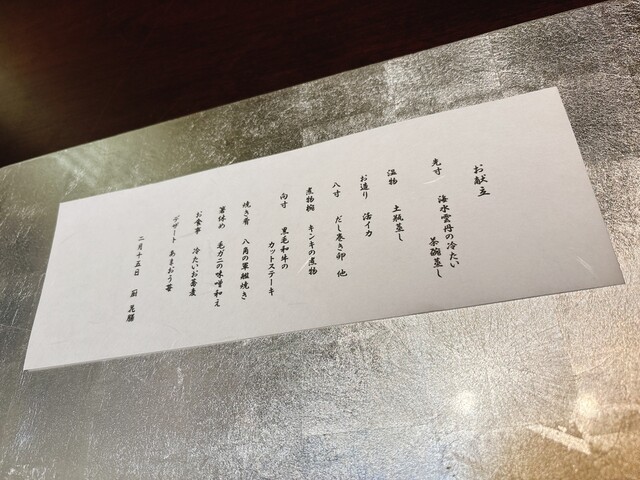 お献立
先寸　海水雲丹の冷たい
茶碗蒸し
温物　土瓶蒸し
お造り　活イカ
八寸　だし巻き卵　他
煮物椀　キンキの煮物
向寸　黒毛和牛の
カットステーキ
焼き肴　八角の軍艦焼き
箸休め　毛ガニの味噌和え
お食事　冷たいお蕎麦
デザート　あまおう苺
二月十五日　厨　花膳